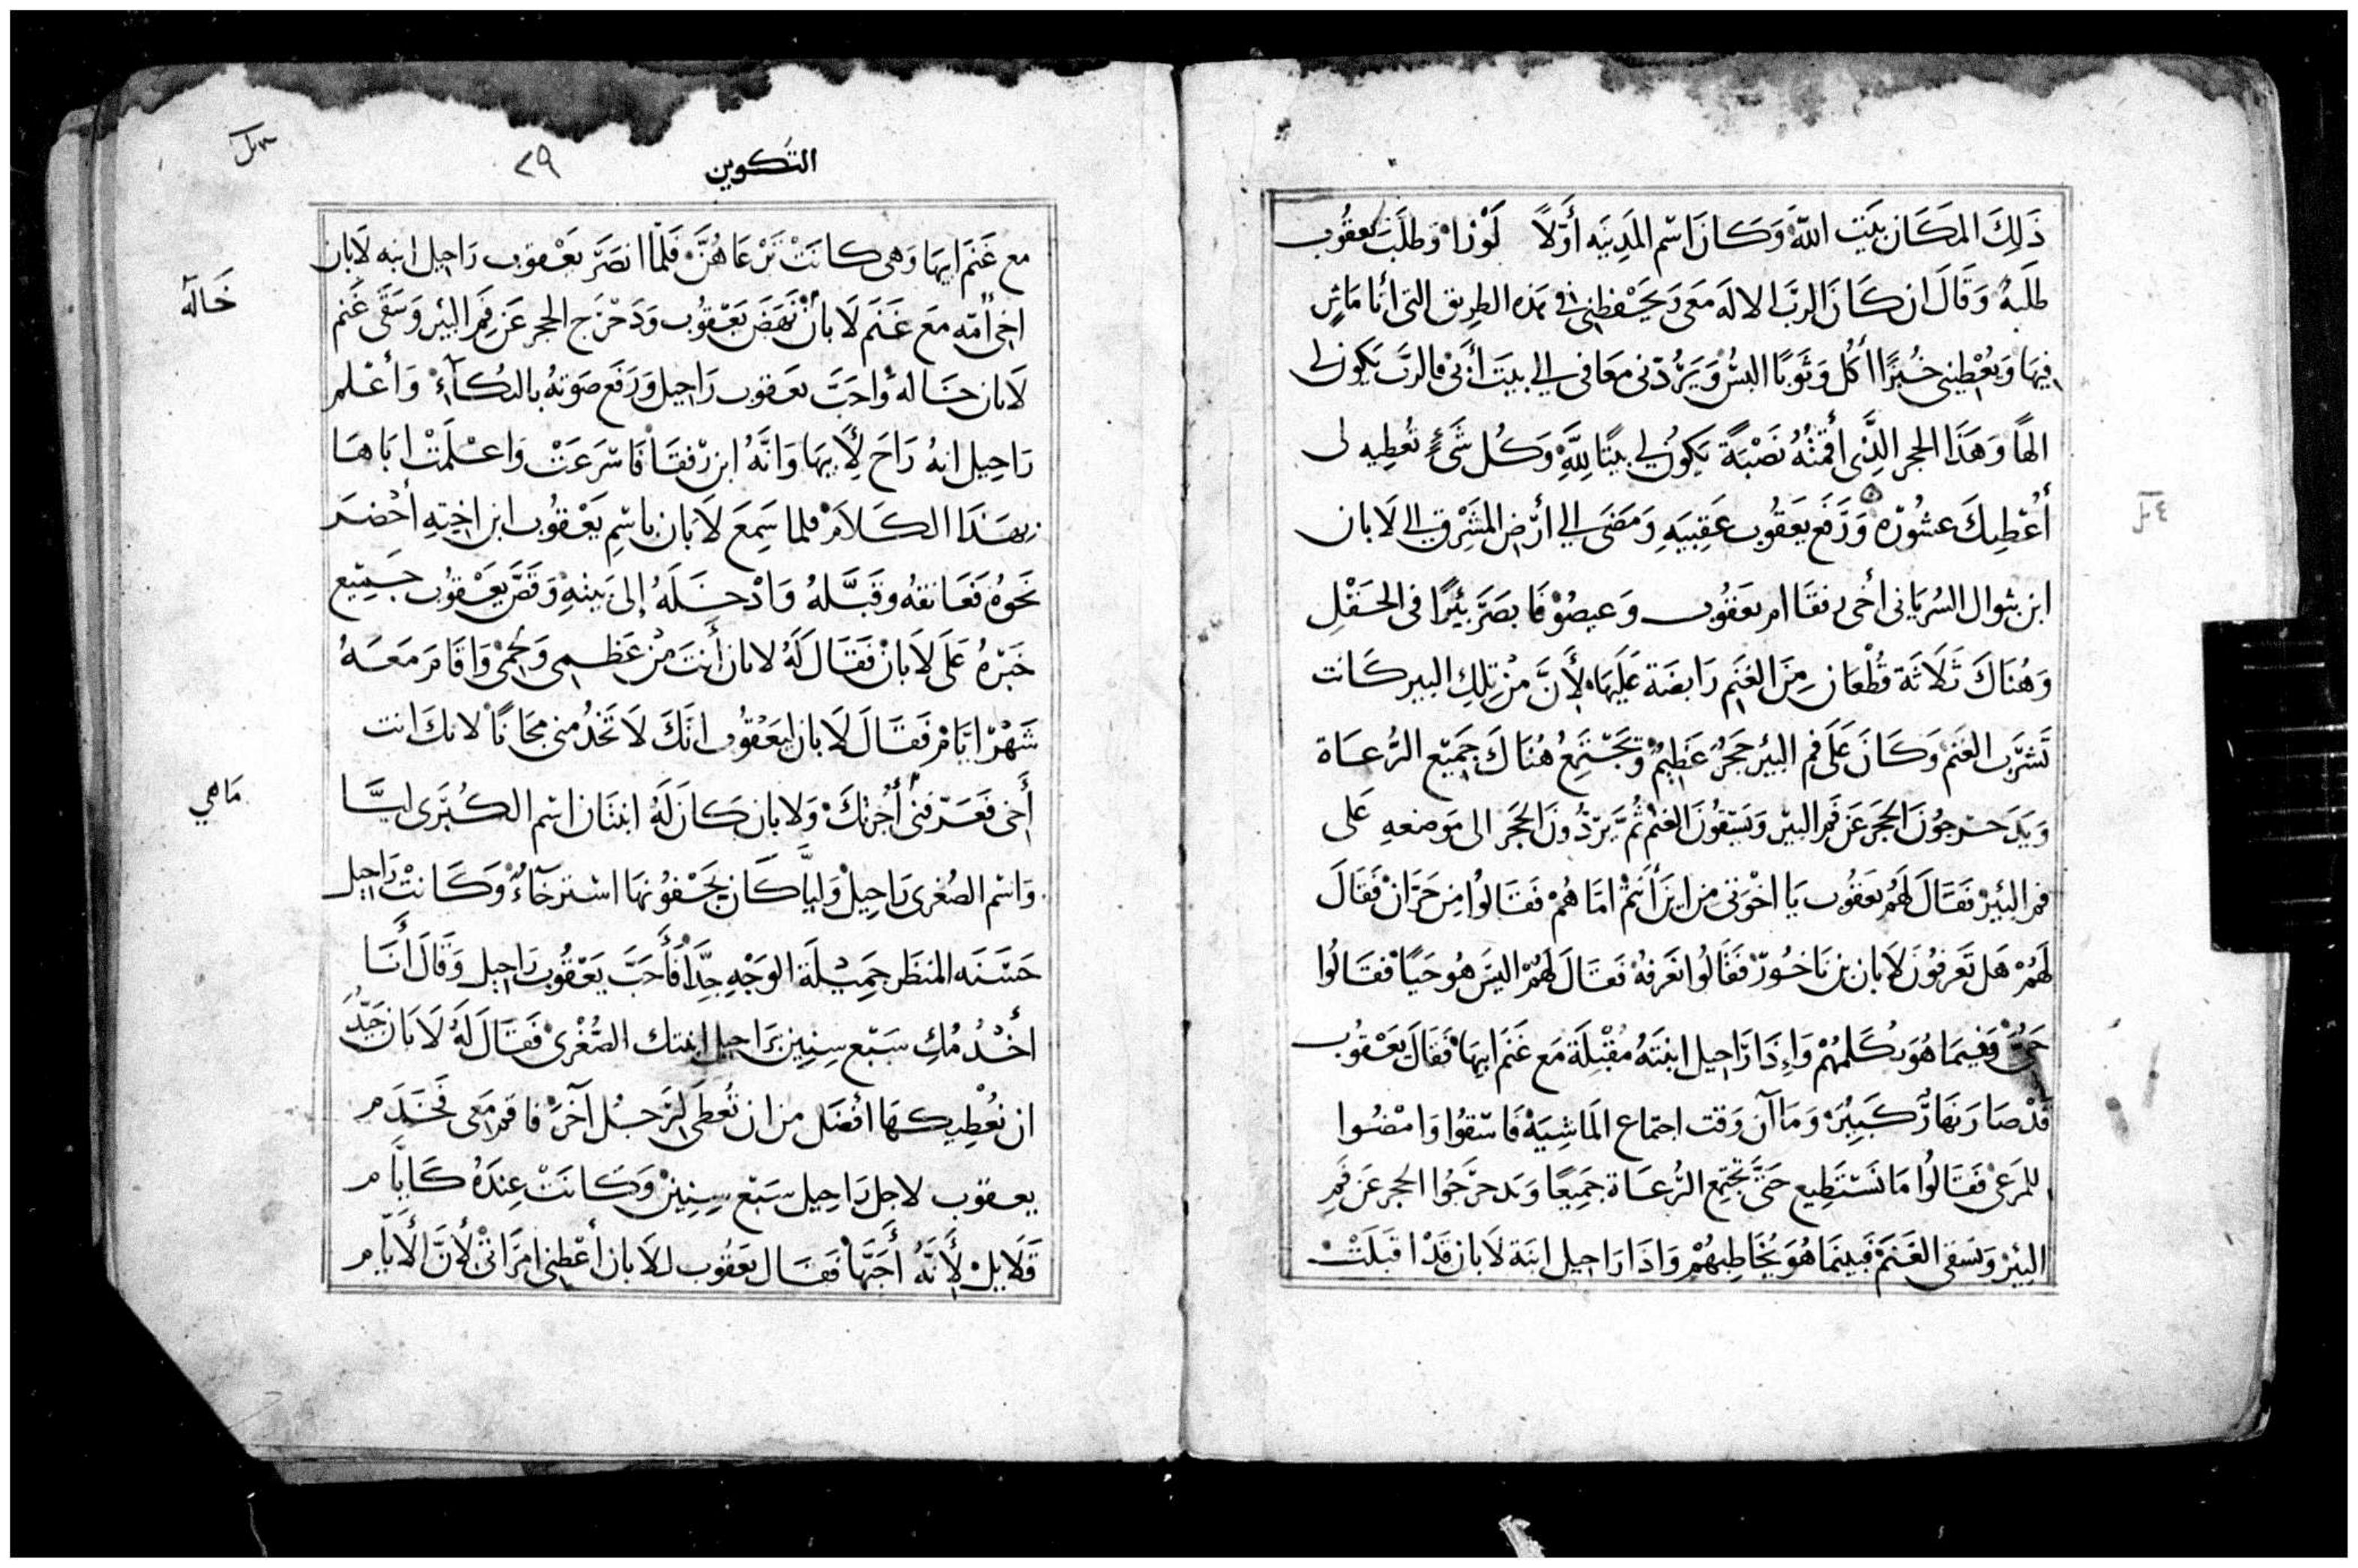 ذَلِكَ المَكَان بَيْت اللَّه وَكَانَ اسْم المَدِينَه أَوَّلاً لَوْزا وَطلَبَ يَعقُوب
طَلَبَهُ وَقَالَ ان كَانَ الربّ الالَه مَعى وَيَحْفظِنى فى هذه الطِريق التى انا مَاشِ
فِيهَا وَيُعْطِينى خُبْزًا أكُل وَثَوبًا البسُ وَيَرُدّنى مَعَافى الى بيتَ أبى فالربّ يَكون لى
الهًا وَهَذَا الحجر الذِى أَقمْتُهُ نَصْبَةً يَكُون لى بيتًا لِلَّهِ وَكُل شَىْءٍ تُعْطِيه لى
أُعْطِيكَ عشُوره وَرَفَع يعَقُوب عَقِبَيهِ وَمَضَى الى أَرْض المَشْرِق الى لَابان
ابن بتوال السُريَانى أخى رفقَا ام يعَقُوب وَعيصُوْ فَابصَرَ بَئِرًا فى الحَقْلِ
وَهُنَاكَ ثَلَاثَة قُطْعَان مِنَ الغَنَم رَابضَة عَلَيهَا لِأَنَّ مِنْ تِلِك البير كَانت
تَشرَب الغَنَم وَكَانَ عَلَى فم البيْر حَجرٌ عَظِيمٌ وَتَجْتَمِعُ هُنَاكَ جَمِيْع الرُّعَاة
وَيَدَحرجُونَ الحَجَرَ عَن فَم البيْر وَيَسْقُونَ الغنم ثُمَّ يَرْدُّونَ الحَجَر الى مَوضعهِ عَلى
فم البِيْر فَقَالَ لَهُم يَعقُوب يَا اخْوَتى من اينَ أَنتُم امَّا هُمْ فَقَالُوا مِن حَرَّانْ فَقَالَ
لَهُمْ هَل تَعَرفوُنَ لَابان بن نَاحُورْ فَقَالُوا نَعَرفهُ فَقَالَ لَهُمْ اليسَ هُو حَيًا فقَالُوا
حَىٌّ وَفِيمَا هُوَ يكَلمِهُمْ وَإِذَا رَاحِيل ابنَتَهُ مُقْبِلَة مَع غَنَم ابيهَا فَقَالَ يَعَقُوب
قَدْ صَارَ نهَارٌ كَبِيْر وَمَا آن وَقت اجتماع المَاشِيَهْ فَاسْقوُا وَامْضُوا
للمَرعَى فَقَالُوا مَا نَسْتَطِيع حَتَّى تَجْتَمِع الرُّعَاة جَمِيعًا وَيَدحرَجُوا الحجر عَن فَمِ
البِيْر وَنسقى الغَنَمَ فَبينَمَا هُوَ يُخَاطِبهُمْ وَاذَا رَاحيل ابنَة لَابان قَدْ اقبَلَتْ
٢٩ التكوين
مع غَنَم ابيهَا وَهى كانَتْ تَرْعَاهُنَّ فَلمَّا ابصَرَ يَعْقوب رَاحِيل ابنه لَابان
اخى أمّه مَع غَنَم لَابان نَهَضَ يَعْقُوب وَدَحْرَج الحجر عَن فَمِ البيْر وَسَقَى غَنم
لَابان خَاله وَاحَبَّ يعَقوب رَاحِيل وَرَفَع صَوته بالبُكَاءْ وَأعْلم
رَاحِيل انهُ رَاحَ لِأَبِيهَا وَانَّهُ ابن رْفقَا فَاسْرَعَتْ وَاعْلَمَتْ ابَاهَا
بهَذا الكَلَام فلما سَمِعَ لَابَان باسْمِ يَعْقُوب ابن اختِه أحْضَرَ
نَحوُهُ فَعَانقهُ وقَبَّلهُ وَادْخَلَهُ إلى بَيتِهِ وَقَصَّ يَعْقُوب جَمِيع
خَبَرُهُ عَلَى لَابَانْ فَقَالَ لَهُ لابان أَنتَ مِنْ عَظمى وَلَحْمى وَاقَامَ مَعَهُ
شَهْرْ ايَّامْ فَقَالَ لَابان ليَعَقُوب انَّكَ لَا تَخْدُمنى مجَانًا لانكَ انت
أَخى فَعَرّفنى أُجْرتِكَ وَلابان كَانَ لَهُ ابنتَان اسْم الكُبْرَى ليَّا
وَاسْم الصُغرى رَاحِيلْ وَليَّا كَان بجَفْونهَا اسْترخَآءٌ وَكَانتْ رَاحِيل
حَسَنَه المنظَر جَمِيْلَة الوَجْهِ جِدًّا فَأحَبَّ يَعَقُوب رَاحِيل وَقَالَ أَنَا
أخْدُمُكِ سَبْع سِنِين برَاحِيل ابنتك الصُّغْرى فَقَالَ لَهُ لَابَان جَيِّدُ
ان نُعْطِيكهَا أفْضَل من ان تُعطى لرَجُل آخَرْ فاقم مَعى فَخَدَم
يعقوب لاجل رَاحِيل سَبْع سِنِينْ وَكَانَتْ عِندَهُ كَايَّام
قَلَايلْ لِأَنَّهُ أَحَبَّهَا فَقَال يَعقُوب للَابان أَعْطِنى امرَاتىْ لأَنَّ الأَيَّام
خَاله
مَاهي